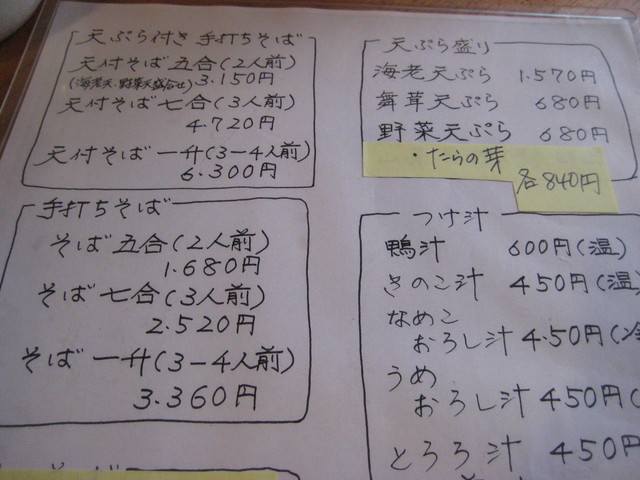 天ぷら付き 手打ちそば
天付そば 五合(2人前)
(海老天、野菜天盛合せ) 3.150円
天付そば 七合(3人前)
4.720円
天付そば 一升(3-4人前)
6.300円
手打ちそば
そば 五合(2人前)
1.680円
そば 七合(3人前)
2.520円
そば 一升(3-4人前)
3.360円
天ぷら盛り
海老天ぷら 1.570円
舞茸天ぷら 680円
野菜天ぷら 680円
・たらの芽
各840円
つけ汁
鴨汁 600円(温)
きのこ汁 450円(温)
なめこ
おろし汁 4.50円(冷
うめ
おろし汁 450円(
とろろ汁 450円